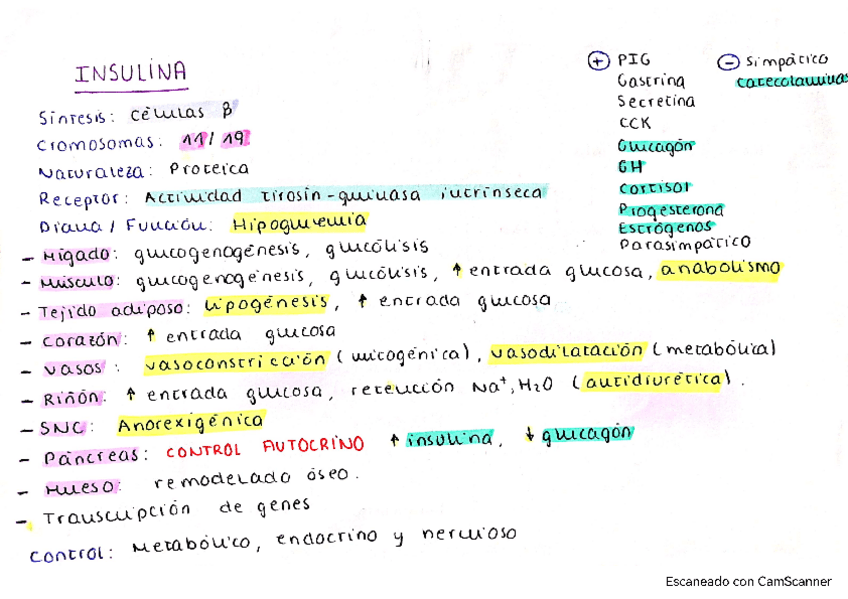 INSULINA
Síntesis: Células β
Cromosomas: 11 / 19
Naturaleza: Proteica
Receptor: Actividad tirosin-quinasa intrínseca
Diana / Función: Hipoglucemia
- Hígado: glucogenogénesis, glucólisis
- Músculo: glucogenogénesis, glucólisis, ↑ entrada glucosa, anabolismo
- Tejido adiposo: Lipogénesis, ↑ entrada glucosa
- Corazón: ↑ entrada glucosa
- Vasos: vasoconstricción (mitogénica), vasodilatación (metabólica)
- Riñón: ↑ entrada glucosa, retención Na⁺, H₂O (antidiurética).
- SNC: Anorexigénica
- Páncreas: CONTROL AUTOCRINO ↑ insulina, ↓ glucagón
- Hueso: remodelado óseo.
- Transcripción de genes
Control: Metabólico, endocrino y nervioso
+ PIG
Gastrina
Secretina
CCK
Glucagón
GH
Cortisol
Progesterona
Estrógenos
Parasimpático
- Simpático
Catecolaminas
Escaneado con CamScanner